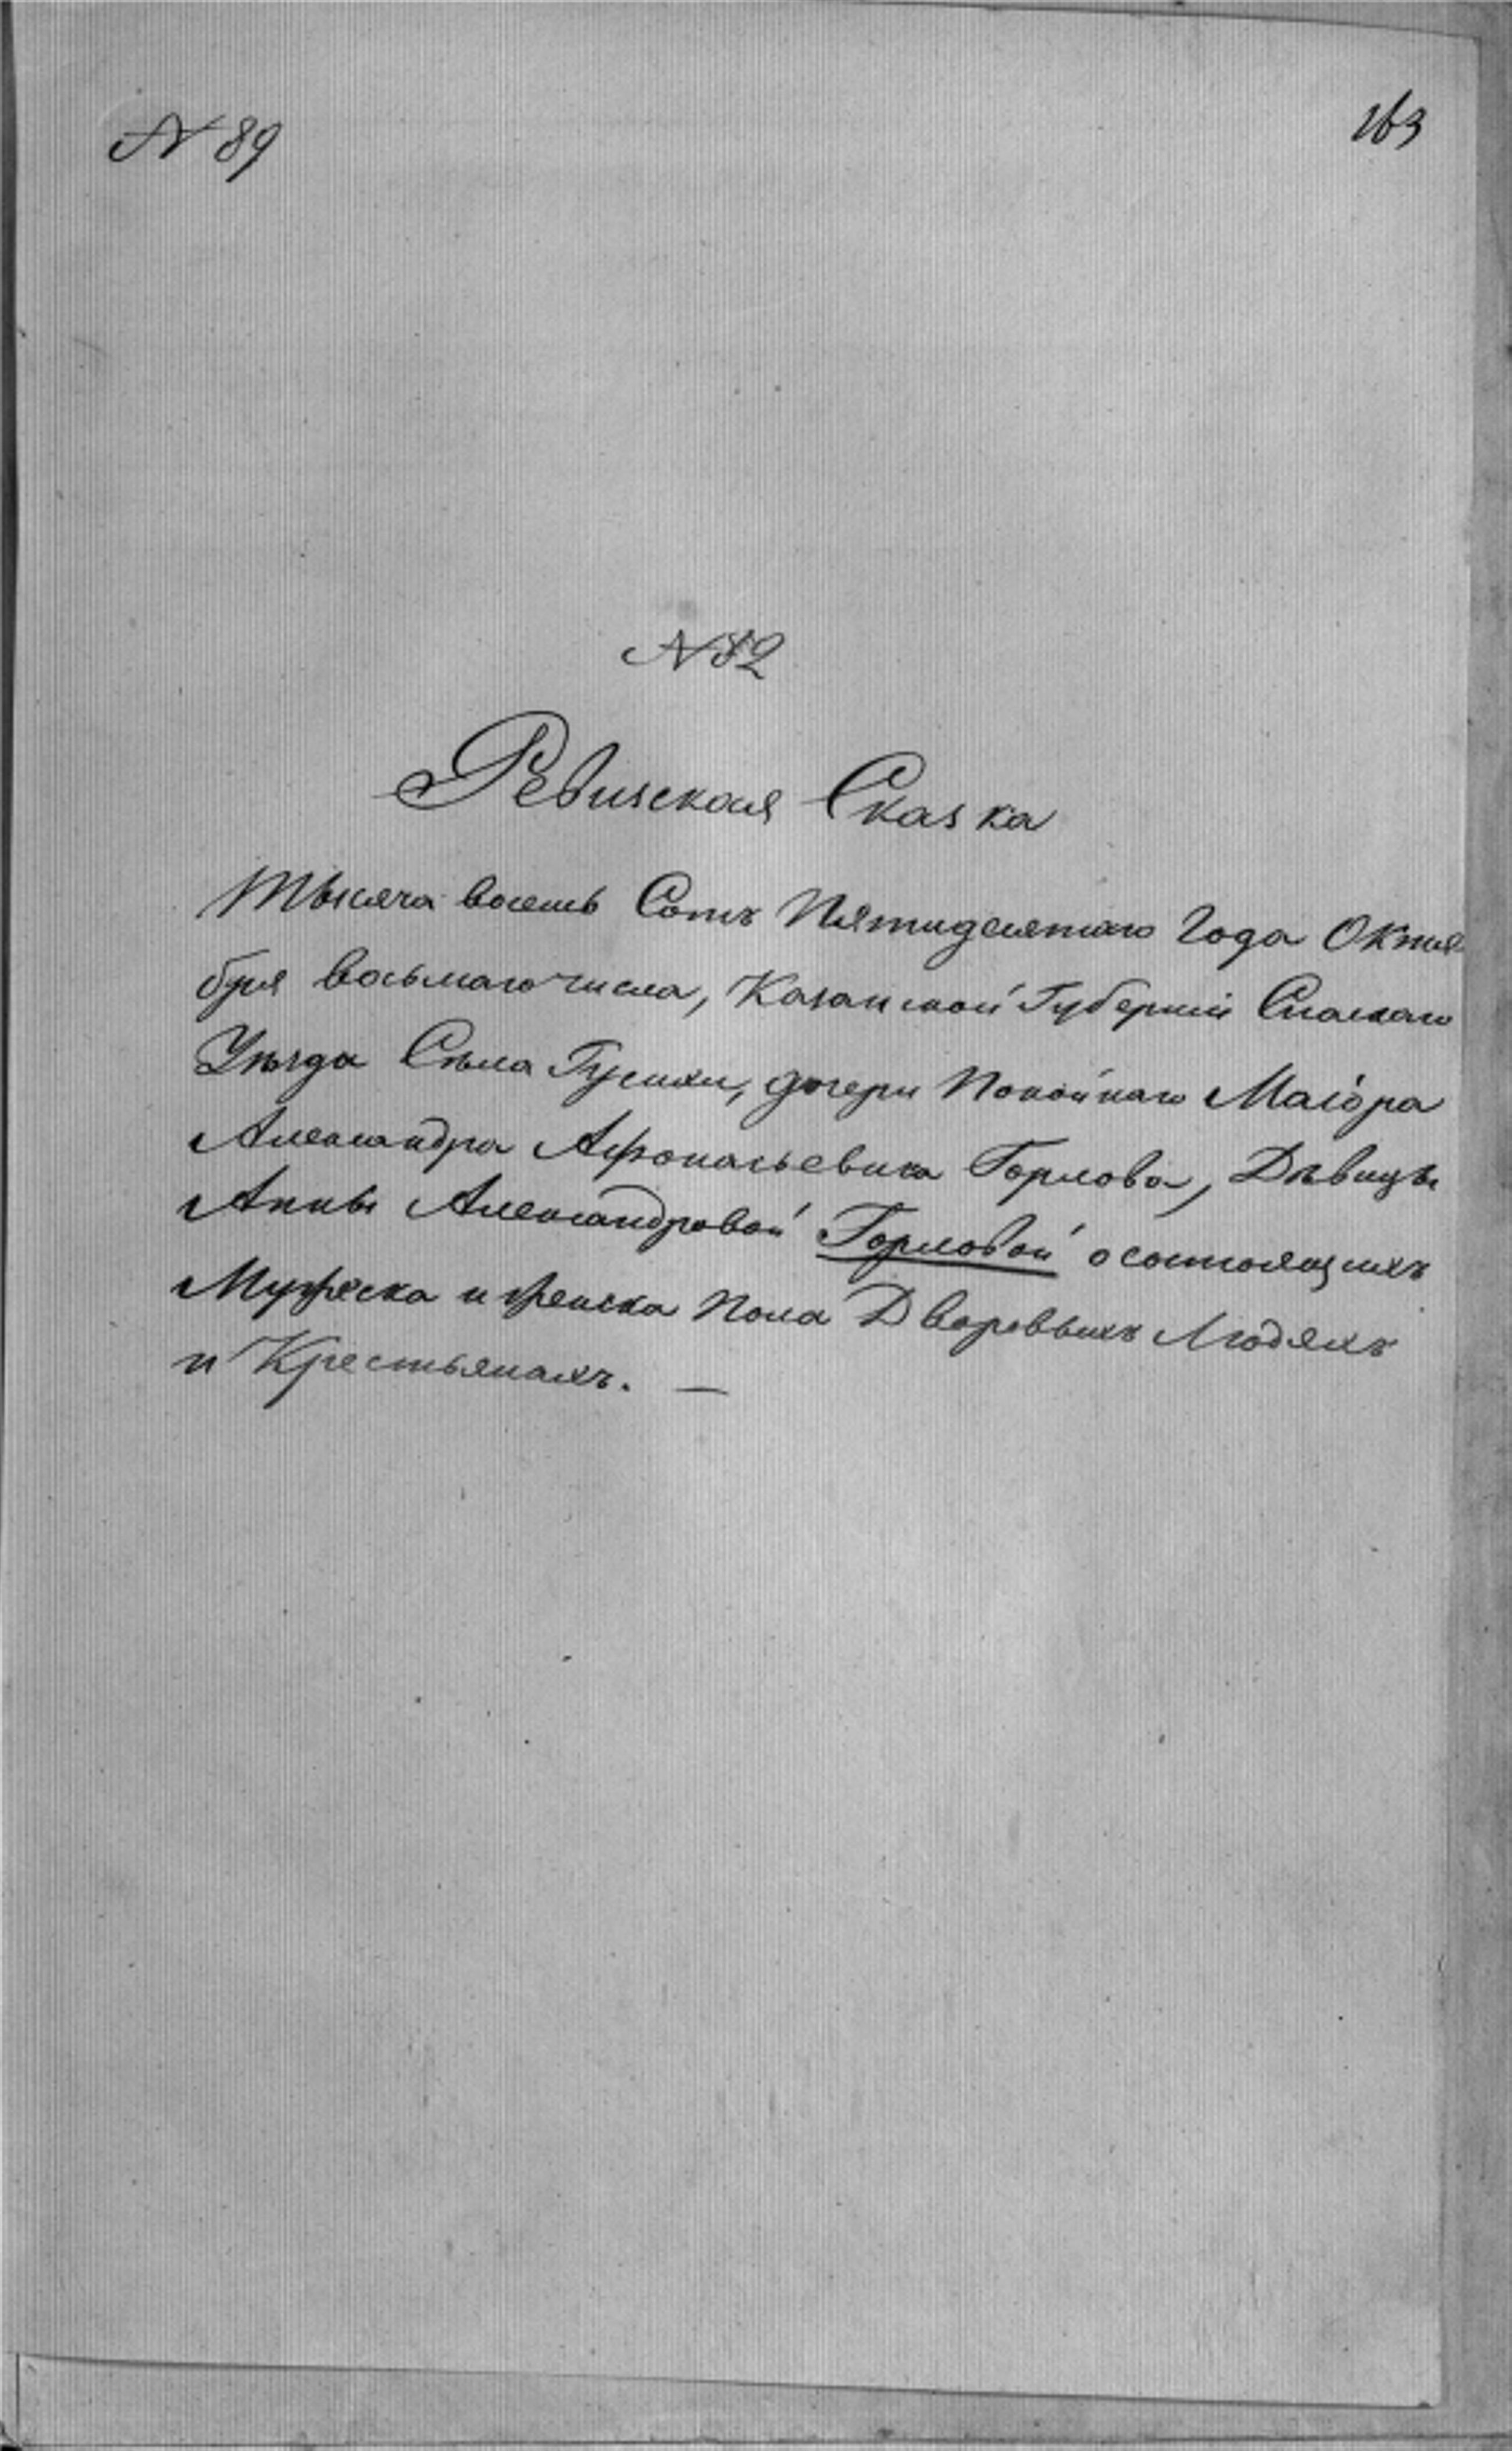 N 89
163
N 82
Ревизская Сказка
Тысяча восемь Сотъ Пятидесятаго Года Октя
бря восьмаго числа, Казанской Губерніи Спаскаго
Уѣзда Сѣла Гусихи, дочери Покойнаго Маіора
Александра Афонасьевича Горлова, Дѣвицы
Анны Александровой Горловой о состоящихъ
Мужеска и женска Пола Дворовыхъ Людяхъ
и Крестьянахъ. —